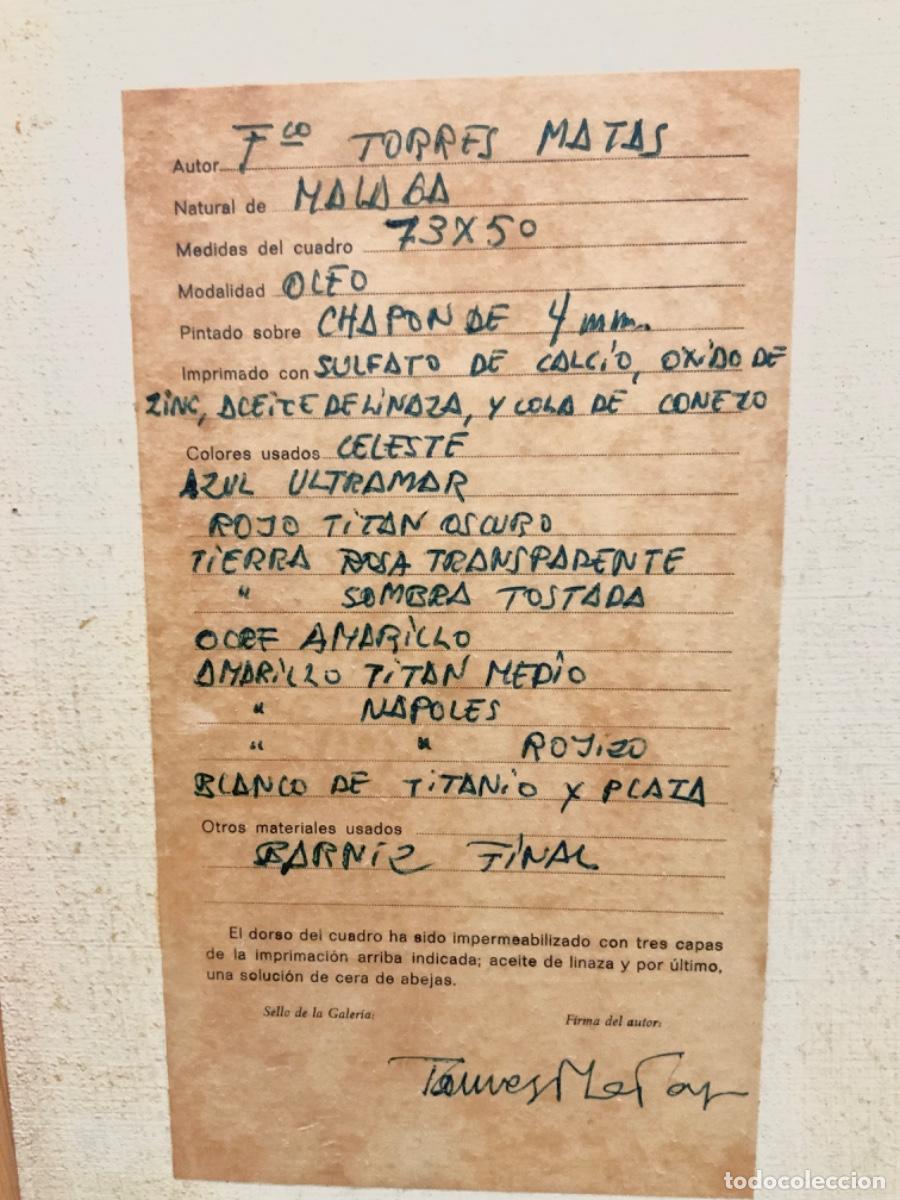 Autor Fco TORRES MATAS
Natural de MALAGA
Medidas del cuadro 73X50
Modalidad OLEO
Pintado sobre CHAPON DE 4 mm.
Imprimado con SULFATO DE CALCIO, OXIDO DE
ZINC, ACEITE DE LINAZA, Y COLA DE CONEZO
Colores usados CELESTE
AZUL ULTRAMAR
ROJO TITAN OSCURO
TIERRA ROSA TRANSPARENTE
" SOMBRA TOSTADA
OCRE AMARILLO
AMARILLO TITAN MEDIO
" NAPOLES
" " ROJIZO
BLANCO DE TITANIO Y PLATA
Otros materiales usados
BARNIZ FINAL
El dorso del cuadro ha sido impermeabilizado con tres capas
de la imprimación arriba indicada; aceite de linaza y por último,
una solución de cera de abejas.
Sello de la Galería: Firma del autor:
Torres Matas
todocoleccion